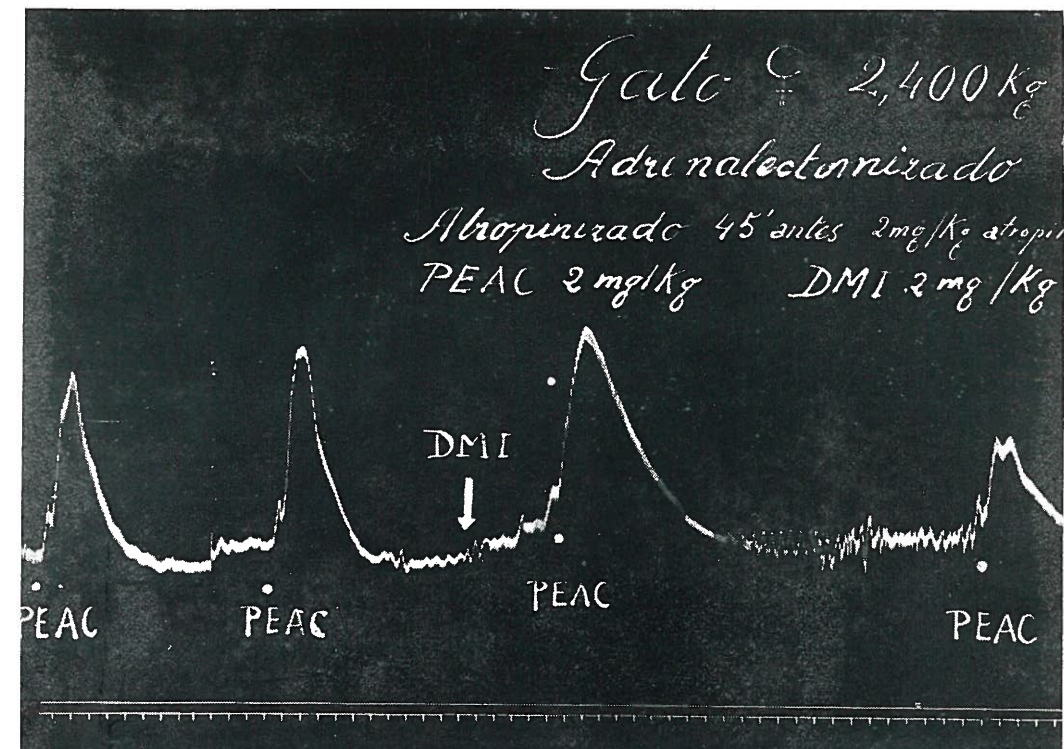 Gato ♀ 2,400 Kg
Adrinalectomizado
Atropinizado 45' antes 2mg/Kg atropi
PEAC 2 mg/Kg DMI 2 mg/Kg
DMI
PEAC PEAC PEAC PEAC